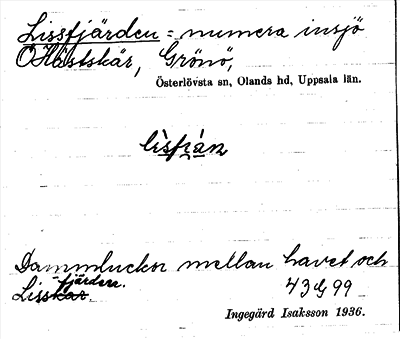 Lissfjärden = numera insjö
Ö Hästskär, Grönö,
Österlövsta sn, Olands hd, Uppsala län.
lisfjạ́n
Dammluckor mellan havet och
-fjärden.
Lisskär.
43 G 99
Ingegärd Isaksson 1936.